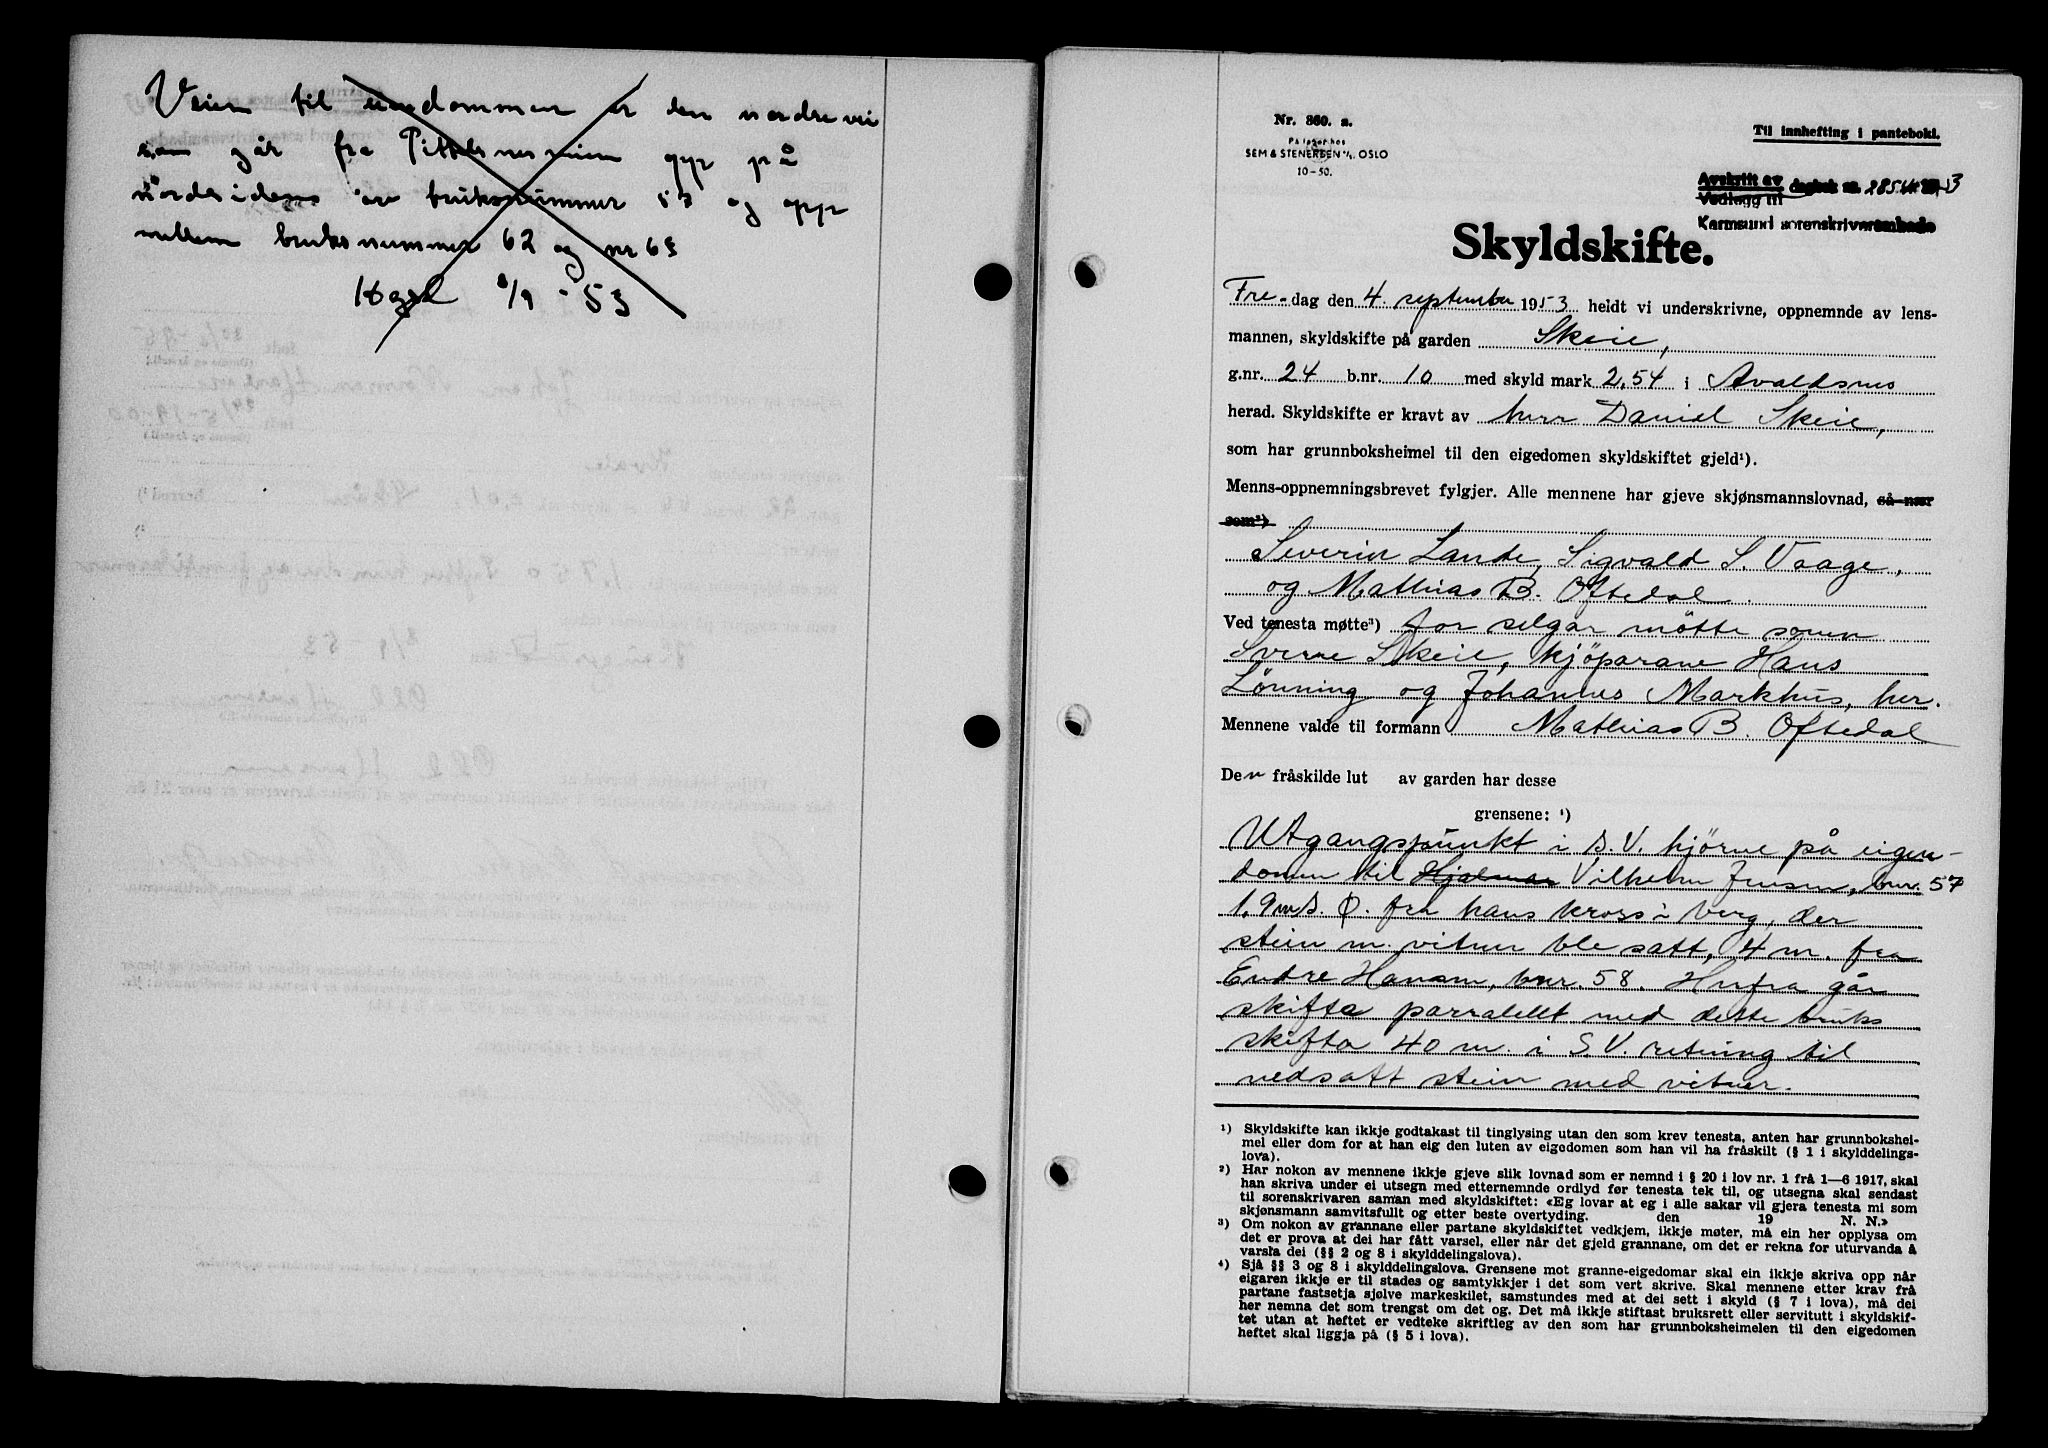 Veien til eiendommen er den nordre vei
som går fra Pittelsnesveien opp på
nordsiden av bruksnummer 53 og opp
mellem bruksnummer 62 og nr 63
8/9 - 53
Nr. 360. a.
På lager hos
SEM & STENERSEN A/S. OSLO
10-50.
Til innhefting i panteboki.
Avskrift av dagbok nr.
Vedlegg til
Karmsund sorenskriverembede
Skyldskifte.
Fre-dag den 4. september 1953 heldt vi underskrivne, oppnemnde av lens-
mannen, skyldskifte på garden Skeie,
g.nr. 24 b.nr. 10 med skyld mark 2,54 i Avaldsnes
herad. Skyldskifte er kravt av herr Daniel Skeie,
som har grunnboksheimel til den eigedomen skyldskiftet gjeld¹).
Menns-oppnemningsbrevet fylgjer. Alle mennene har gjeve skjønsmannslovnad, så nær
som²)
Severin Lande, Sigvald S. Vaage,
og Mathias B. Oftedal.
Ved tenesta møtte³) for selgar møtte sonen
Sverre Skeie, kjöparane Hans
Lönning og Johannes Markhus, her.
Mennene valde til formann Mathias B. Oftedal
Den fråskilde lut av garden har desse
grensene: ⁴)
Utgangspunkt i S.V. hjörne på eigen-
domen til Hjalmar Vilhelm Jensen, bnr. 57
1,9 m S. Ø. fra hans kross i berg, der
stein m. vitner ble satt, 4 m. fra
Endre Hansen, bnr. 58. Herfra går
skifte parralellt med dette bruks
skifta 40 m. i S.V. retning til
nedsatt stein med vitner.
¹) Skyldskifte kan ikkje godtakast til tinglysing utan den som krev tenesta, anten har grunnbokshei-
mel eller dom for at han eig den luten av eigedomen som han vil ha fråskilt (§ 1 i skylddelings-
lova).
²) Har nokon av mennene ikkje gjeve slik lovnad som er nemnd i § 20 i lov nr. 1 frå 1—6 1917, skal
han skriva under ei utsegn med etternemnde ordlyd før tenesta tek til, og utsegna skal sendast
til sorenskrivaren saman med skyldskiftet: «Eg lovar at eg i alle sakar vil gjera tenesta mi som
skjønsmann samvitsfullt og etter beste overtyding. den 19 N. N.»
³) Om nokon av grannane eller partane skyldskiftet vedkjem, ikkje møter, må ein her opplysa om
det er prova at dei har fått varsel, eller når det gjeld grannane, om det er rekna for uturvanda å
varsla dei (§§ 2 og 8 i skylddelingslova).
⁴) Sjå §§ 3 og 8 i skylddelingslova. Grensene mot granne-eigedomar skal ein ikkje skriva opp når
eigaren ikkje er til stades og samtykkjer i det som vert skrive. Skal mennene etter krav frå
partane fastsetja sjølve markeskilet, samstundes med at dei sett i skyld (§ 7 i lova), må dei
her nemna det som trengst om det og. Det må ikkje stiftast bruksrett eller servitutt i skyldskif-
tet utan at heftet er vedteke skriftleg av den som har grunnboksheimelen til den eigedomen
heftet skal liggja på (§ 5 i lova).